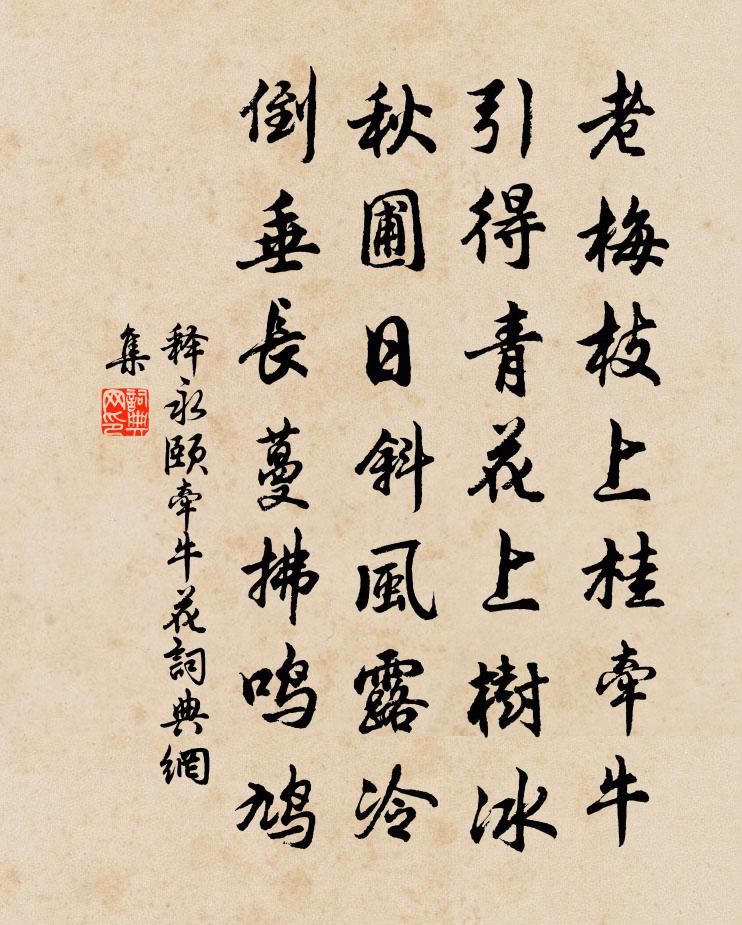 老梅枝上桂牵牛
引得青花上樹冰
秋圃日斜風露冷
倒垂長蔓拂鸣鸠
释永颐牵牛花詞典網
集
詞典
网印